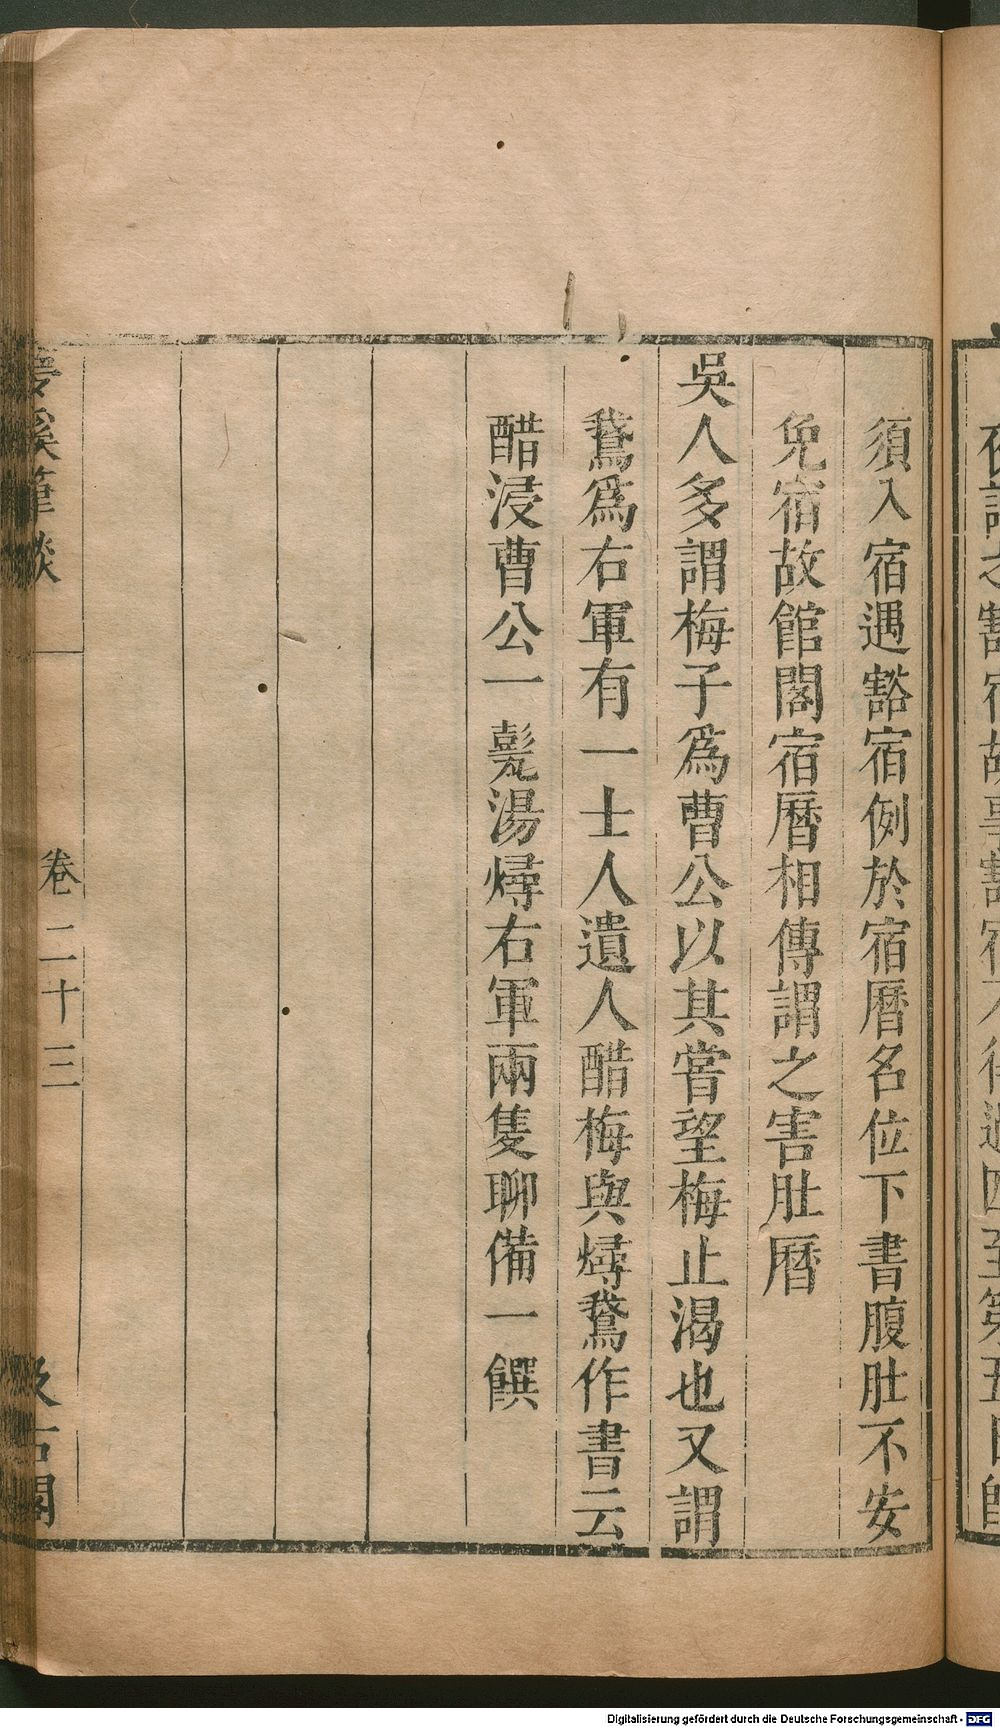 須入宿遇豁宿例於宿曆名位下書腹肚不安
免宿故館閣宿曆相傳謂之害肚曆
吳人多謂梅子爲曹公以其嘗望梅止渴也又謂
鵞爲右軍有一士人遺人醋梅與燖鵞作書云
醋浸曹公一甏湯燖右軍兩隻聊備一饌
筆談
卷二十三
古閣
Digitalisierung gefördert durch die Deutsche Forschungsgemeinschaft - DFG